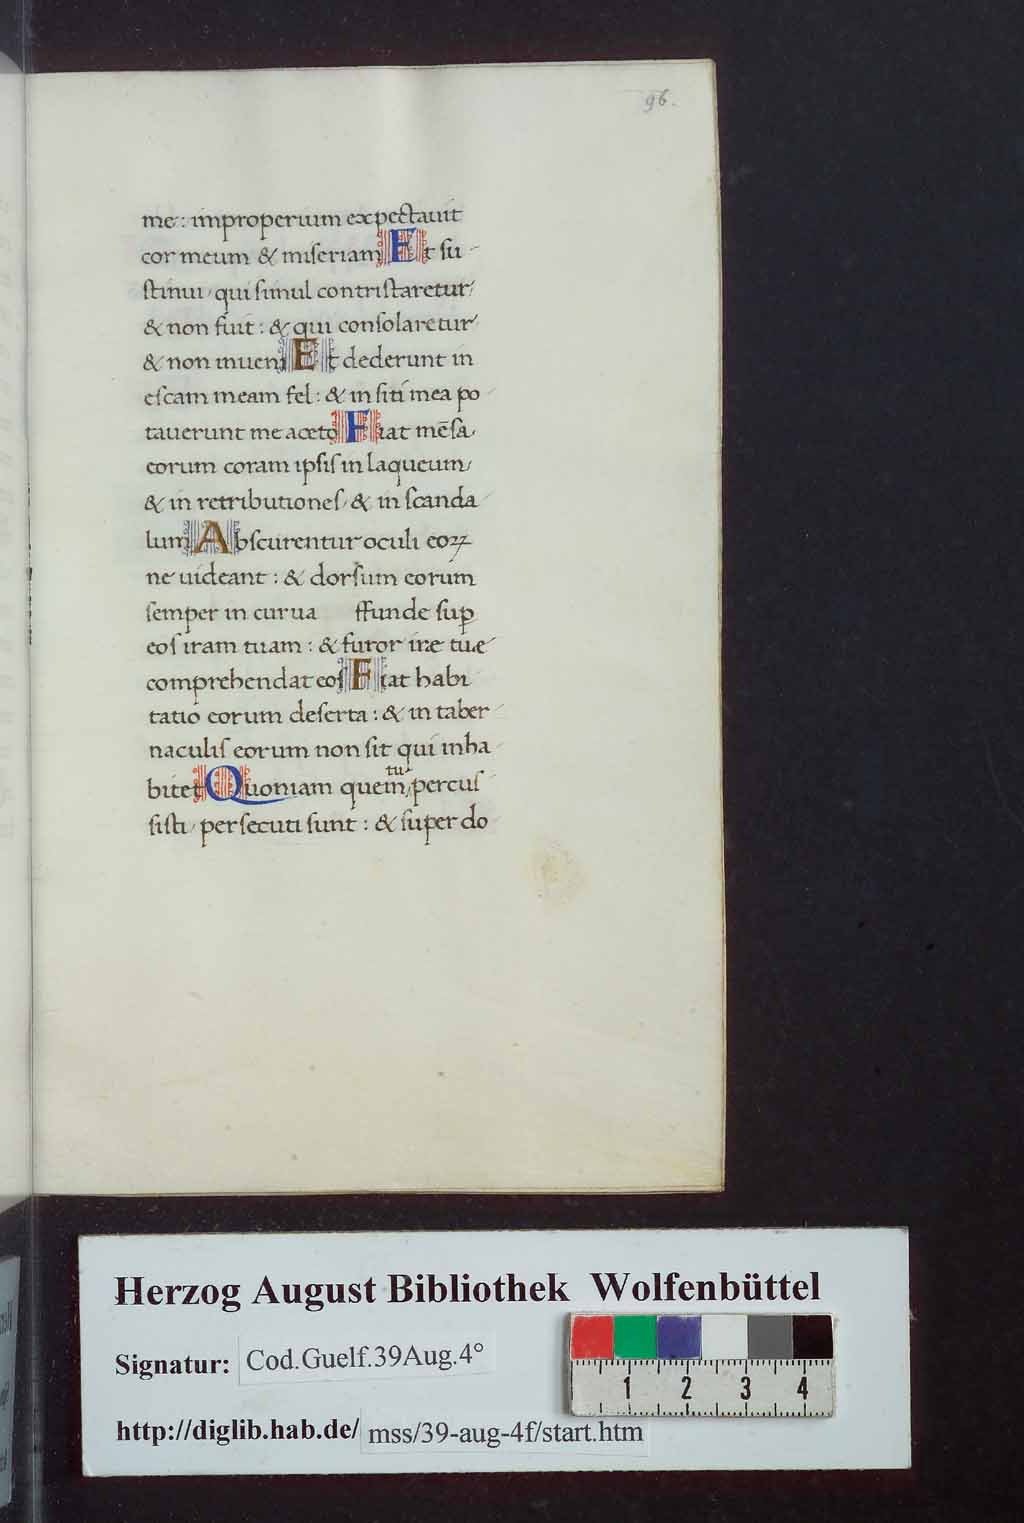 96.
me: improperium expectauit
cor meum & miseriam Et su
stinui, qui simul contristaretur,
& non fuit: & qui consolaretur
& non inueni Et dederunt in
escam meam fel: & in siti mea po
tauerunt me aceto Fiat mēsa
eorum coram ipsis in laqueum,
& in retributiones, & in scanda
lum Abscurentur oculi eoꝝ
ne uideant: & dorsum eorum
semper in curua ffunde suꝑ
eos iram tuam: & furor iræ tuæ
comprehendat eos Fiat habi
tatio eorum deserta: & in taber
naculis eorum non sit qui inha
bitet Quoniam quem tu percus
sisti, persecuti sunt: & super do
Herzog August Bibliothek Wolfenbüttel
Signatur: Cod.Guelf.39Aug.4°
http://diglib.hab.de/ mss/39-aug-4f/start.htm
1 2 3 4